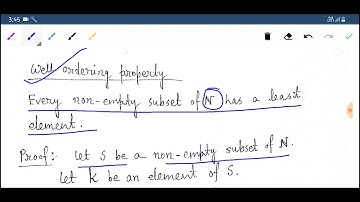 3:45
80%
Well ordering property
Every non-empty subset of N has a least
element.
Proof:- Let S be a non-empty subset of N.
Let K be an element of S.